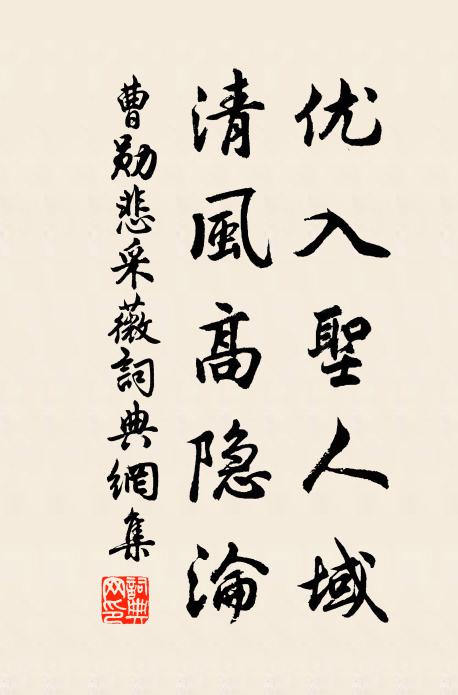 优入聖人域
清風高隐淪
曹勛悲采薇詞典網集
詞典網印